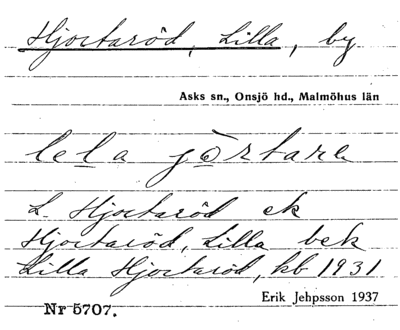 Hjortaröd, Lilla, by
Asks sn., Onsjö hd., Malmöhus län
lela
L. Hjortaröd ek
Hjortaröd, Lilla bek
Lilla Hjortaröd, kb 1931
Erik Jehpsson 1937
Nr 5707.